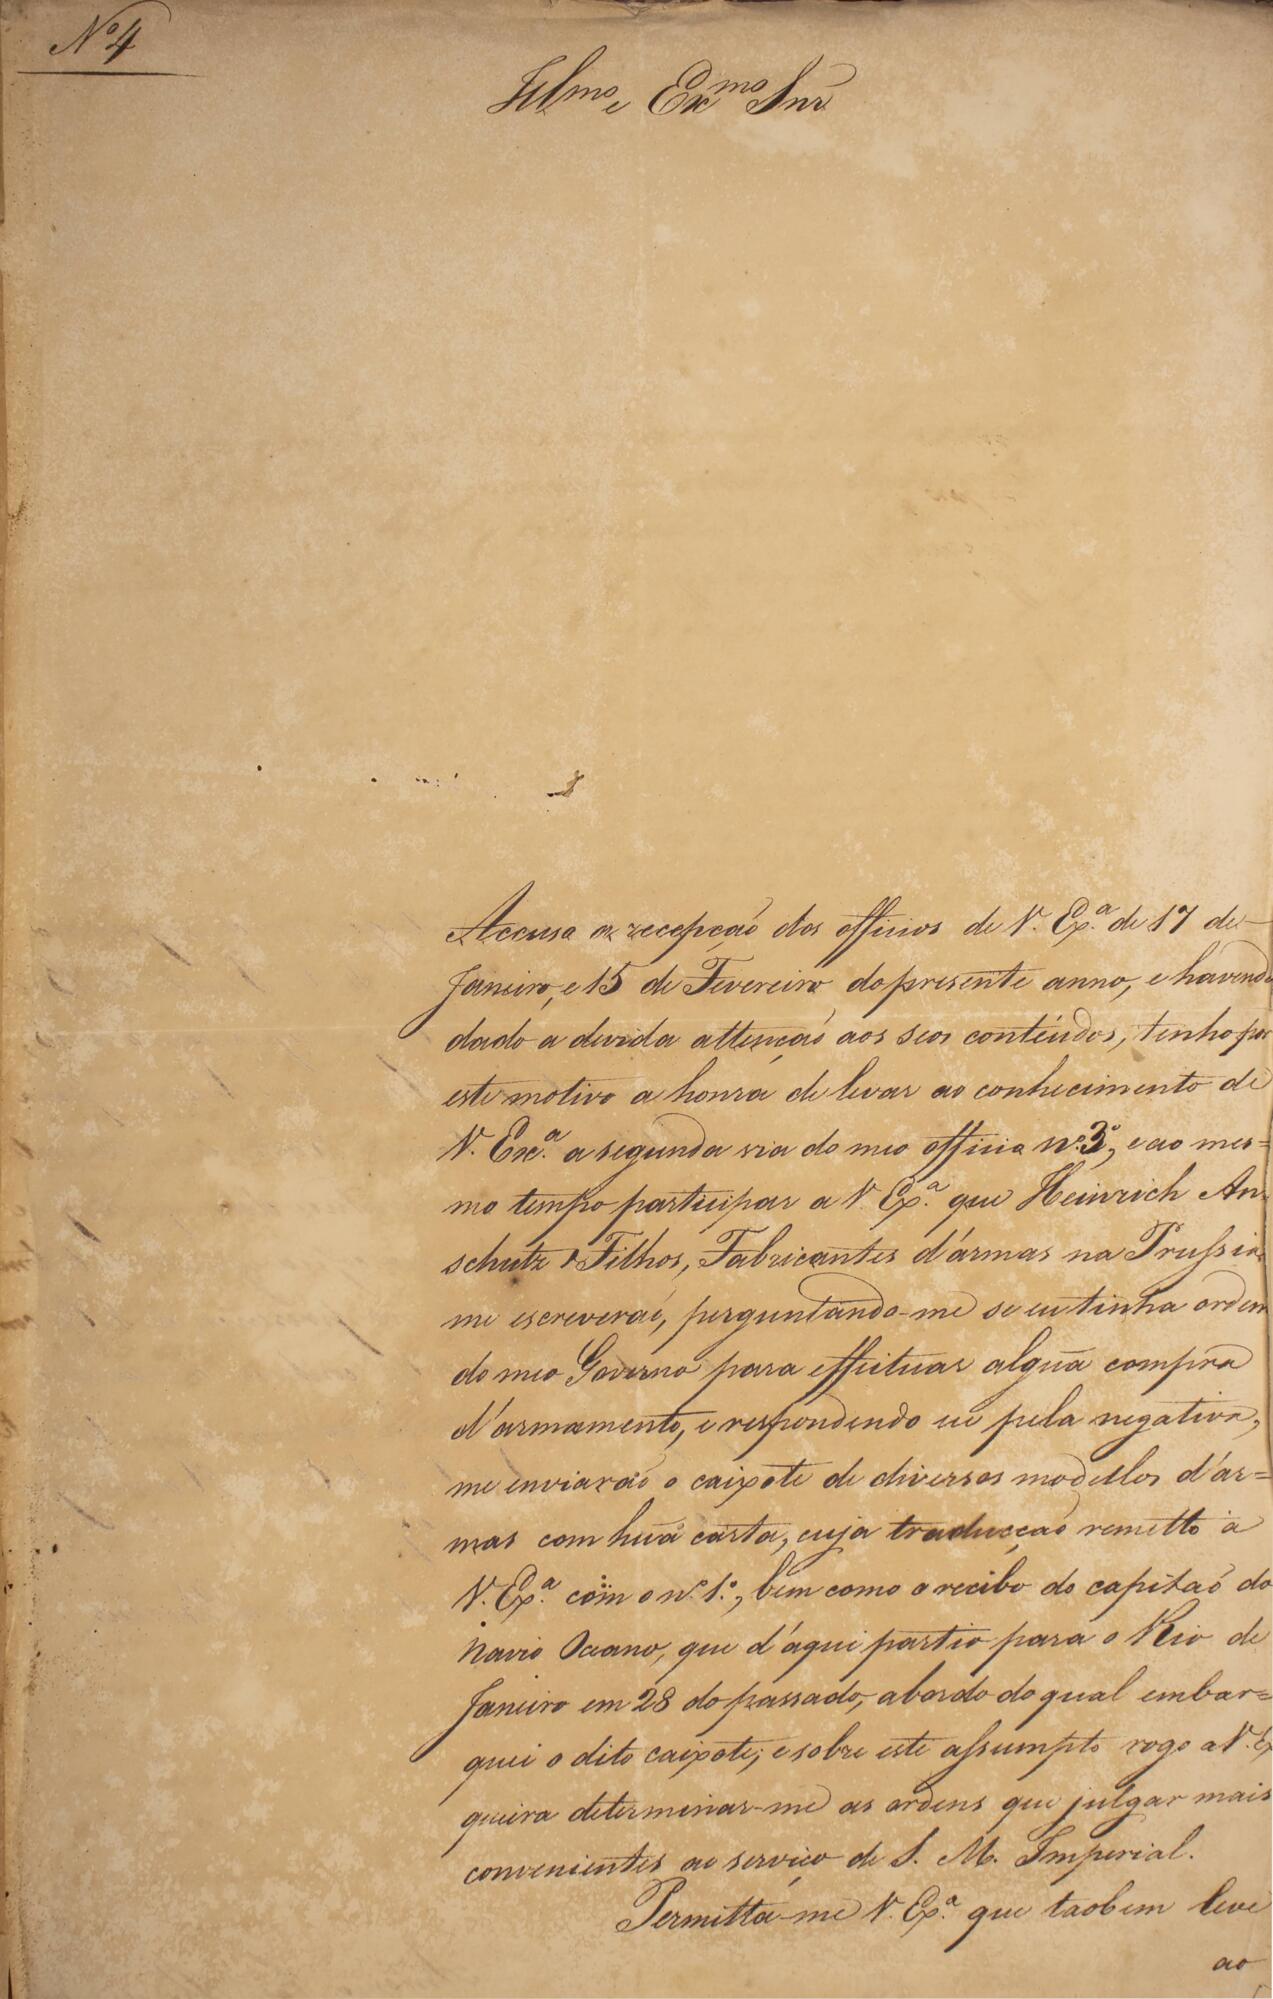 Nº 4
Illmo e Exmo Snr
Accuso a recepção dos officios de V. Exª. de 17 de
Janeiro, e 15 de Fevereiro do presente anno, e havendo
dado a devida attenção aos seos contéudos, tenho por
este motivo a honra de levar ao conhecimento de
V. Exª. a segunda via do meo officio nº. 3º, e ao mes=
mo tempo participar a V. Exª. que Heinrich An=
schutz & Filhos, Fabricantes d'ármas na Prussia
me escreveraõ, perguntando-me se eu tinha ordem
do meo Governo para effeituar algũa compra
d'armamento, e respondendo eu pela negativa,
me enviaraõ o caixote de diversos modellos d'ar=
mas com huã carta, cuja traducçaõ remetto a
V. Exª. com o nº. 1º., bem como o recibo do capitaõ do
Navio Oceano, que d'áqui partio para o Rio de
Janeiro em 28 do passado, abordo do qual embar=
quei o dito caixote; e sobre este assumpto rogo a V. Ex
queira determinar-me as ordens que julgar mais
convenientes ao serviço de S. M. Imperial.
Permitta-me V. Exª. que taobem leve
ao